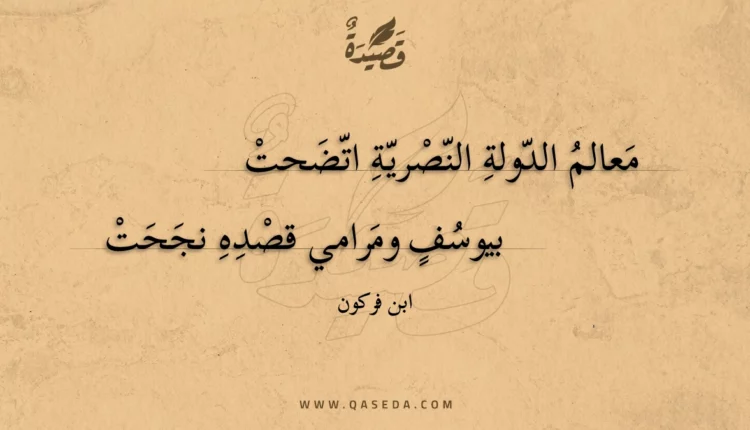 قَصِيدَةٌ
مَعالمُ الدّولةِ النّصْريّةِ اتّضَحتْ
بيوسُفٍ ومَرامي قصْدِهِ نجَحَتْ
ابن فركون
WWW.QASEDA.COM